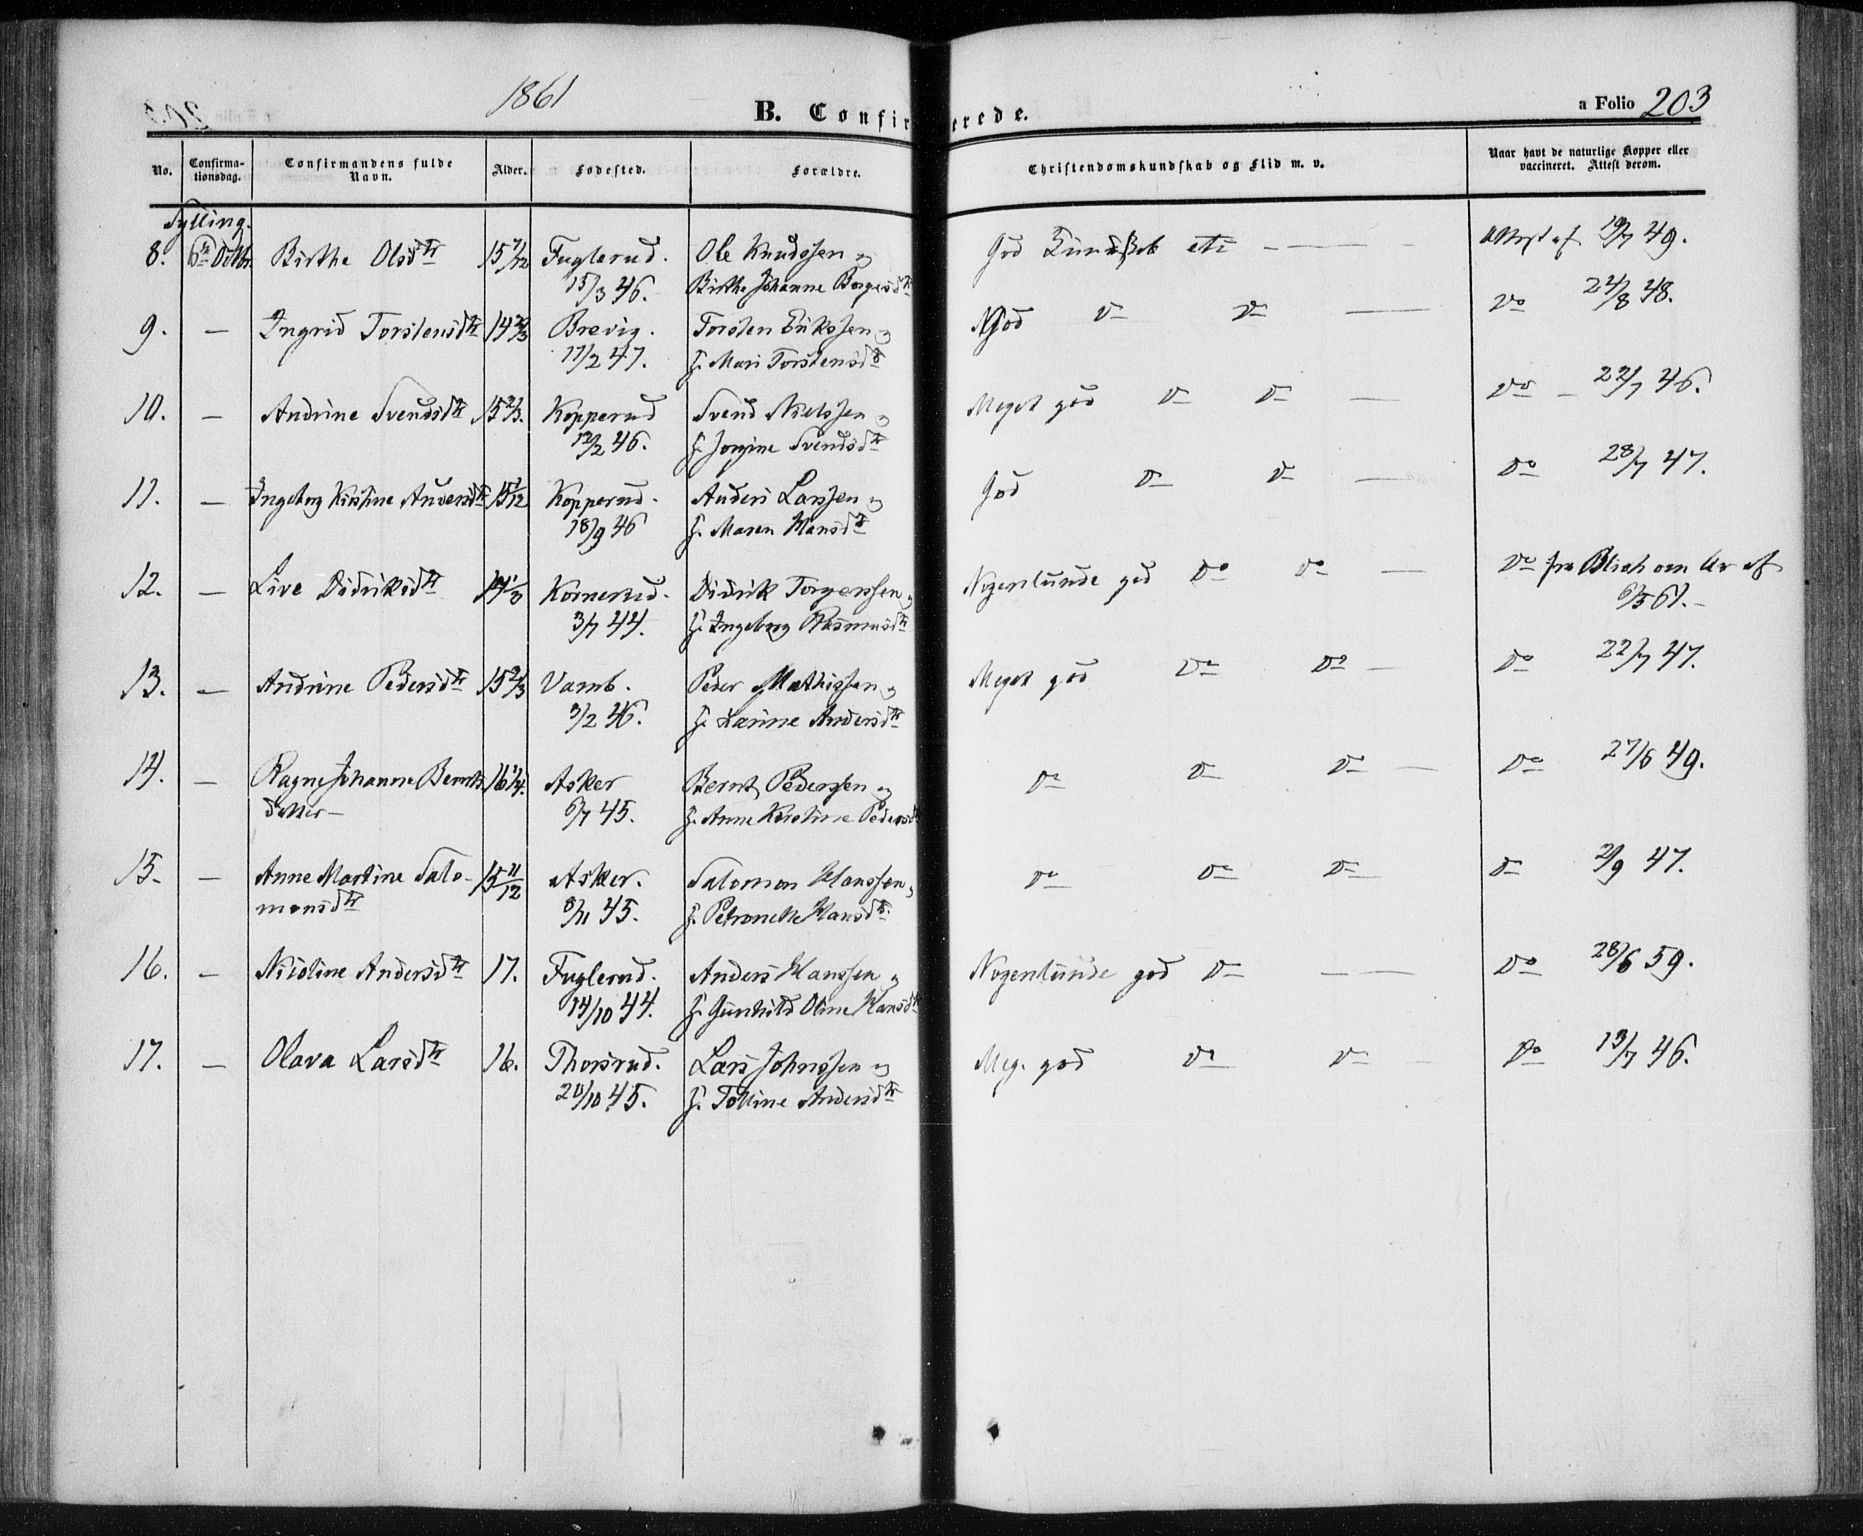 1861
B. Confirmerede.
a Folio 203
No.
Confirma-
tionsdag.
Confirmandens fulde
Navn.
Alder.
Fødested.
Forældre.
Christendomskundskab og Flid m. v.
Naar havt de naturlige Kopper eller
vaccineret. Attest derom.
Sylling.
8. 6te Octbr. Birthe Olsdtr 15 7/12 Fuglerud. Ole Knudssen og God Kundskab etc — Attest af 19/7 49.
15/3 46. Birthe Johanne Borgersdtr
9. — Ingrid Torstensdtr 14 2/3 Brevig. Torsten Erikssen og God do do — do 24/8 48.
17/2 47. H. Mari Torstensdtr
10. — Andrine Svendsdtr 15 2/3. Kopperud Svend Nielssen og Meget god do do — do — 22/7 46.
12/2 46. H. Jorgine Svendsdtr
11. — Ingeborg Kirstine Andersdtr 15 1/12 Kopperud. Anders Larssen og God do do — do 28/7 47.
18/9 46 H. Maren Hansdtr
12. — Live Didriksdtr 17 1/3 Kornerud. Didrik Torgerssen og Nogenlunde god do do — do fra Blich om Ar af
3/7 44. H. Ingeborg Rasmusdtr 6/5 61.
13. — Andrine Pedersdtr 15 2/3 Vamb. Peder Mathissen og Meget god do do — do 22/7 47.
3/2 46. H. Larine Andersdtr
14. — Ragne Johanne Bernts- 16 1/4. Asker Bernt Pederssen og do do do — do 27/6 49.
datter — 6/7 45. H. Anne Kirstine Pedersdtr
15. — Anne Martine Salo- 15 11/12 Asker. Salomon Hanssen og do do do — do 2/9 47.
monsdtr 8/11 45. H. Petronelle Hansdtr.
16. — Nicoline Andersdtr 17. Fuglerud. Anders Hanssen og Nogenlunde god do — — do 28/6 59.
14/10 44. H. Gunhild Oline Hansdtr
17. — Olava Larsdtr 16. Thorsrud. Lars Johnssen og Meg. god do do — do 13/7 46.
20/10 45. H. Tolline Andersdtr